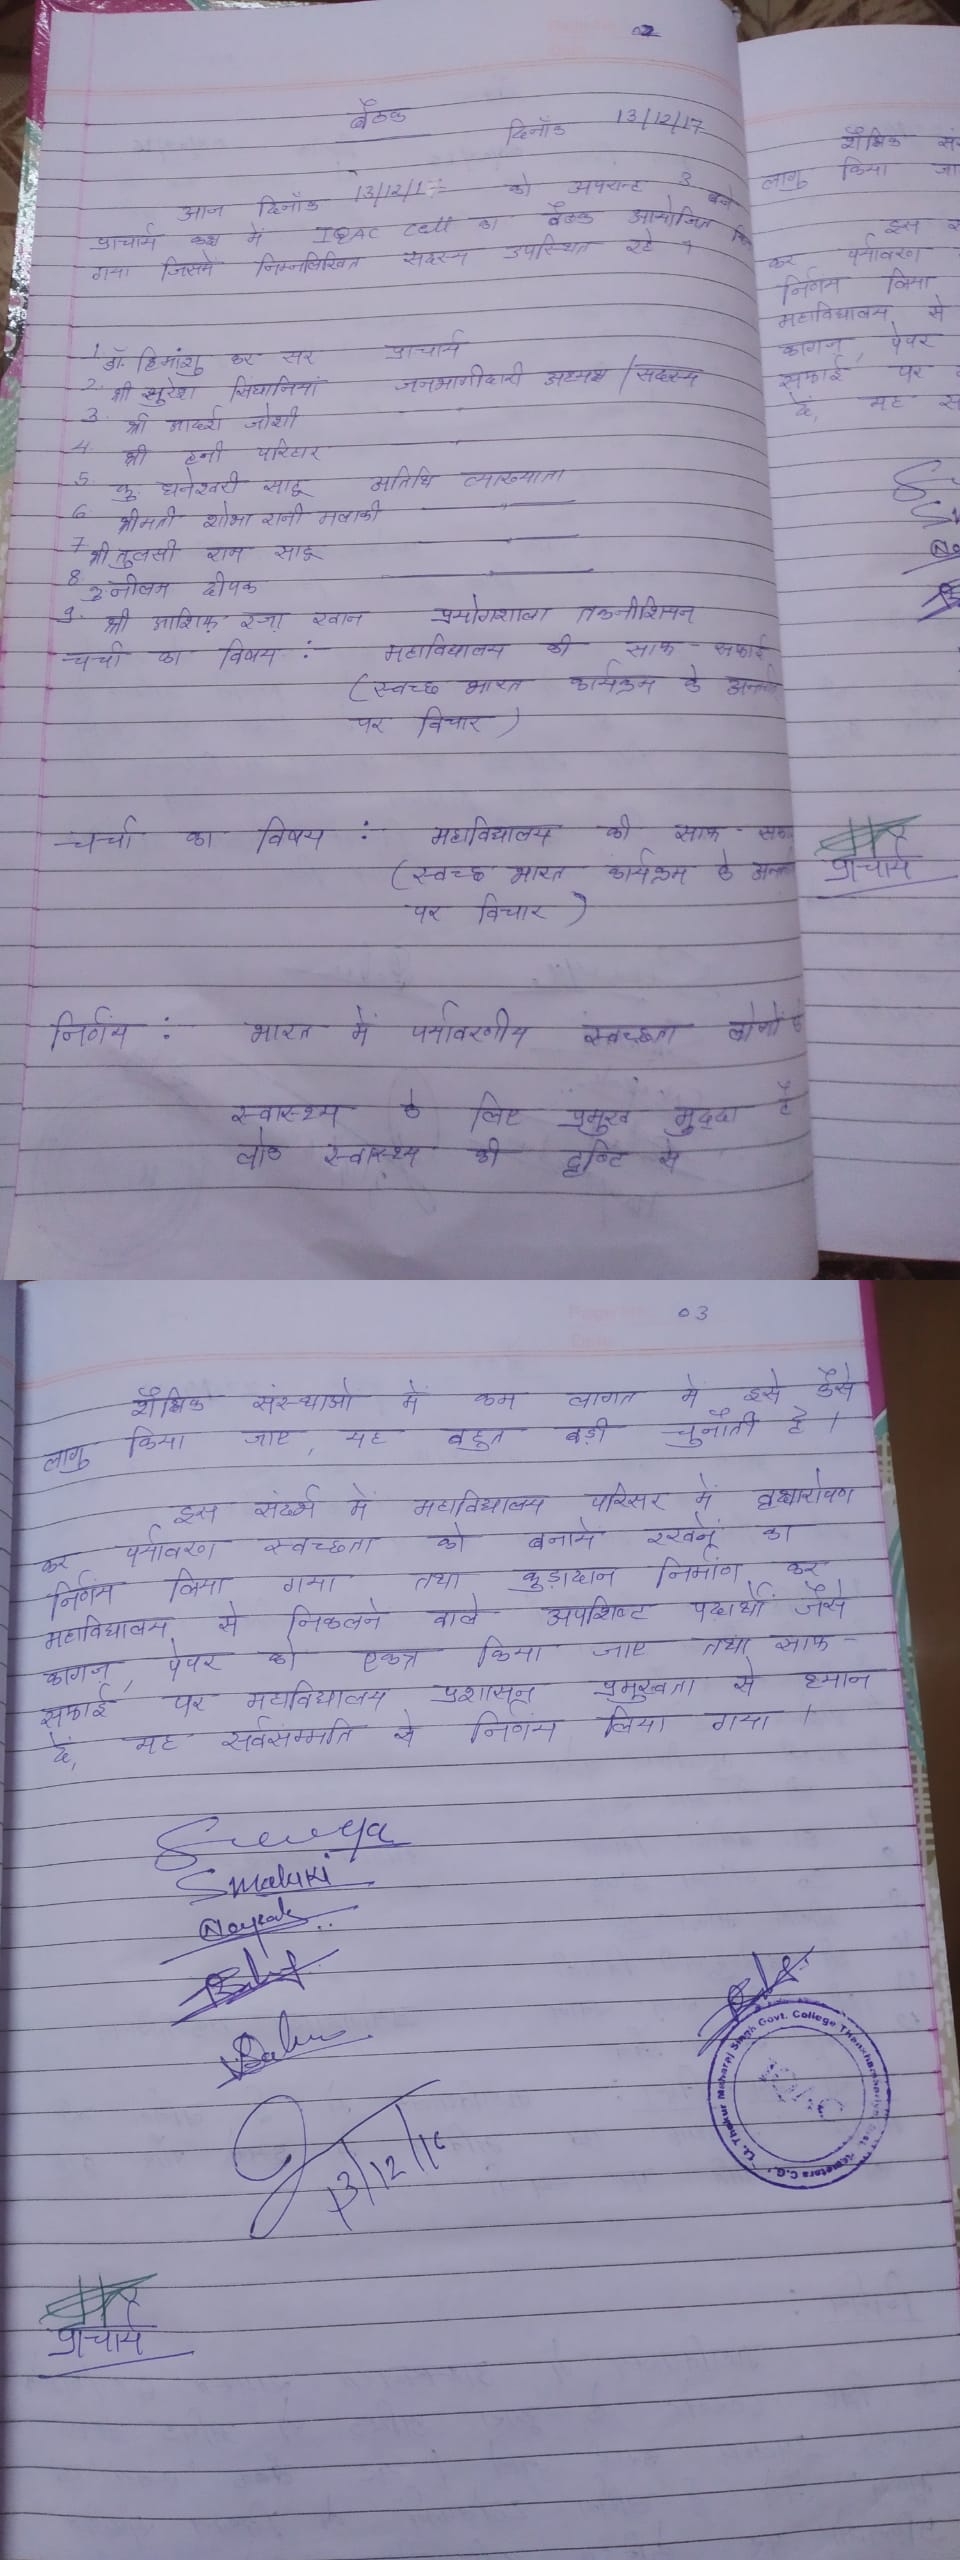 02
बैठक
दिनाँक 13/12/17
आज दिनाँक 13/12/17 को अपरान्ह 3 बजे
प्राचार्य कक्ष में IQAC Cell का बैठक आयोजित किया
गया जिसमें निम्नलिखित सदस्य उपस्थित रहे ।
1. डॉ. हिमांशु कर सर प्राचार्य
2. श्री सुरेश सिंघानियां जनभागीदारी अध्यक्ष / सदस्य
3. श्री आदर्श जोशी
4. श्री हनी परिहार "
5. कु. धनेश्वरी साहू अतिथि व्याख्याता
6. श्रीमती शोभा रानी मलाकी "
7. श्री तुलसी राम साहू "
8. कु. नीलम दीपक "
9. श्री आशिक़ रज़ा खान प्रयोगशाला तकनीशियन
चर्चा का विषय :- महाविद्यालय की साफ - सफाई
(स्वच्छ भारत कार्यक्रम के
पर विचार )
चर्चा का विषय : महाविद्यालय की साफ -
(स्वच्छ भारत कार्यक्रम के
पर विचार )
निर्णय : भारत में पर्यावरणीय स्वच्छता लोगों के
स्वास्थ्य के लिए प्रमुख मुद्दा है
लोक स्वास्थ्य की दृष्टि से
प्राचार्य
03
शैक्षिक संस्थाओ में कम लागत में इसे कैसे
लागु किया जाए, यह बहुत बड़ी चुनौती है ।
इस संदर्भ में महाविद्यालय परिसर में वृक्षारोपण
कर पर्यावरण स्वच्छता को बनाये रखने का
निर्णय लिया गया तथा कुड़ादान निर्माण कर
महाविद्यालय से निकलने वाले अपशिष्ट पदार्थों जैसे
कागज़, पेपर को एकत्र किया जाए तथा साफ -
सफाई पर महाविद्यालय प्रशासन प्रमुखता से ध्यान
दें, यह सर्वसम्मति से निर्णय लिया गया ।
Smalaki
Sahu
13/12/
Lt. Thakur Maharaj Singh Govt. College Thankhamhariya Bemetara C.G.
IQAC
प्राचार्य